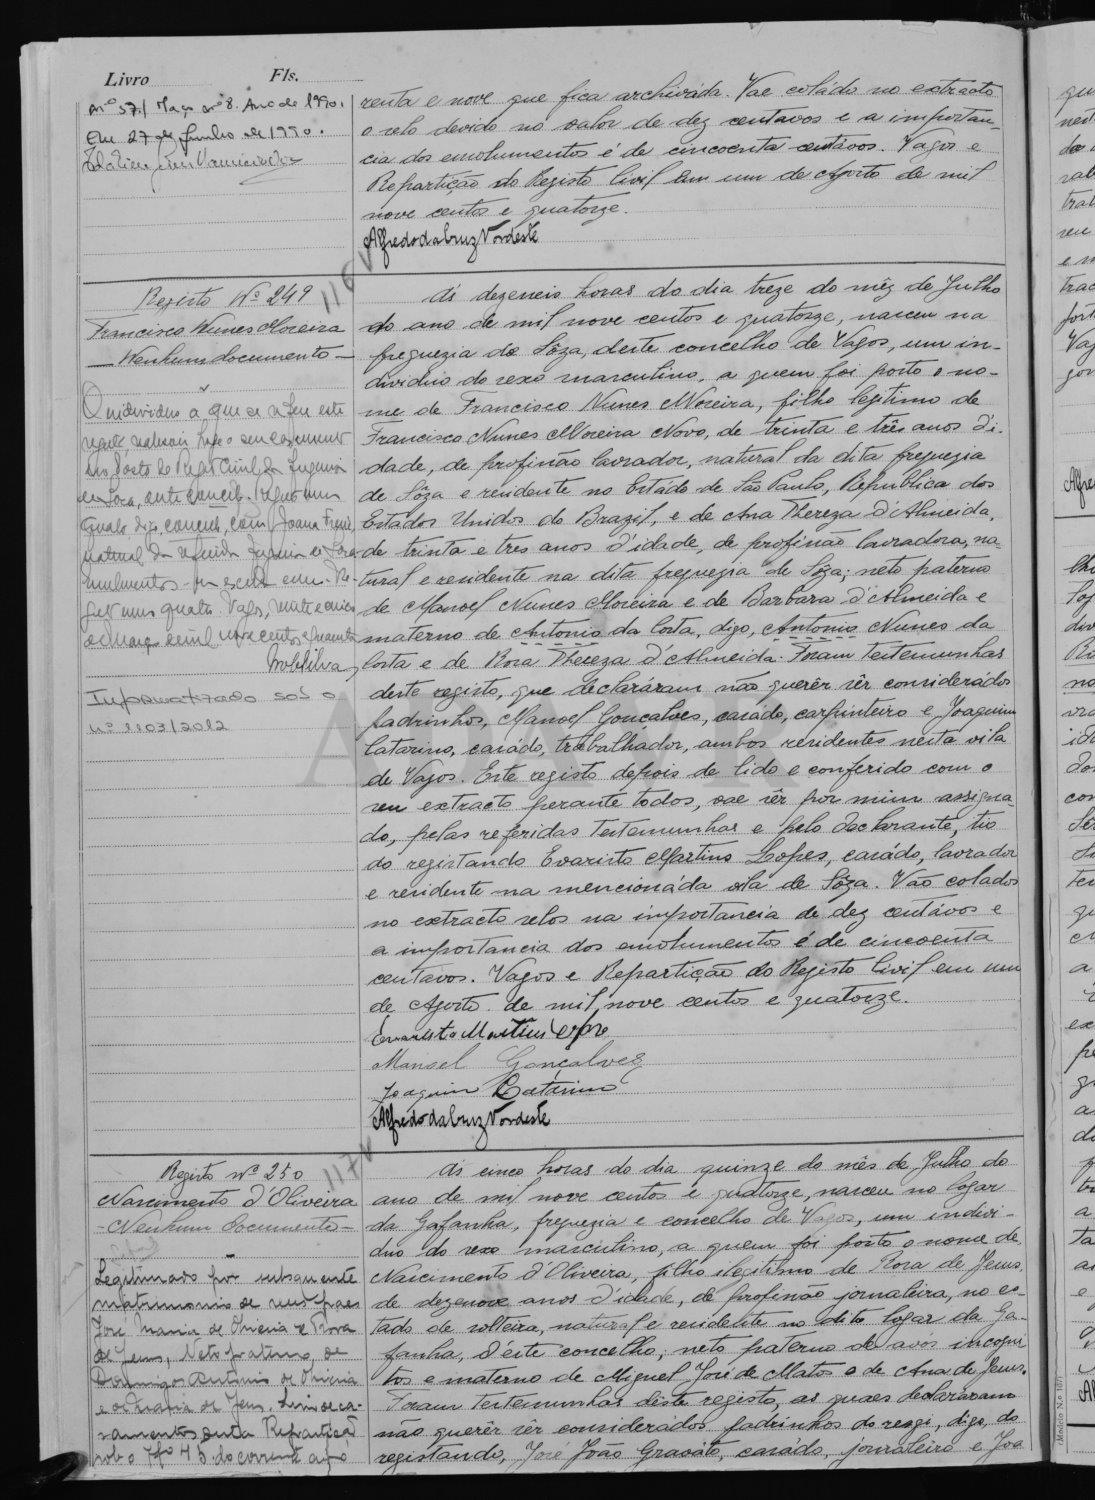 Livro Fls.
nº 571 Maço nº 8. Ano de 1990.
Em 27 de Junho de 1990.
renta e nove que fica archivada. Vae coládo no extracto
o selo devido no valor de dez centavos e a importan-
cia dos emolumentos é de cincoenta centávos. Vagos e
Repartição do Registo Civil em um de Agosto de mil
nove centos e quatorze.
Alfredo da Cruz Nordeste
Registo Nº 249
Francisco Nunes Moreira
— Nenhum documento —
O individuo a que se refere este
registo hoje o seu casamento
no Posto do Registo Civil da freguesia
de Soza, deste concelho. Registo num
com Joana
natural da referida freguesia de Soza
quatro. Vagos, vinte e cinco
de Março de mil novecentos e quarenta
Informatizado sob o
nº 3103/2012
116
Ás dezeseis horas do dia treze do mêz de Julho
do ano de mil nove centos e quatorze, nasceu na
freguezia de Sôza, deste concelho de Vagos, um in-
dividuo do sexo masculino, a quem foi posto o no-
me de Francisco Nunes Moreira, filho legitimo de
Francisco Nunes Moreira Novo, de trinta e três anos d'i-
dade, de profissão lavrador, natural da dita freguezia
de Sôza e residente no Estádo de São Paulo, Republica dos
Estados Unidos do Brazil, e de Ana Thereza d'Almeida,
de trinta e tres anos d'idade, de profissão lavradora, na-
tural e residente na dita freguezia de Sôza; neto paterno
de Manoel Nunes Moreira e de Barbara d'Almeida e
materno de Antonio da Costa, digo, Antonio Nunes da
Costa e de Rosa Thereza d'Almeida. Foram testemunhas
deste registo, que declaráram não querêr sêr considerádos
padrinhos, Manoel Gonçalves, casádo, carpinteiro e Joaquim
Catarino, casádo, trabalhador, ambos residentes nesta vila
de Vagos. Este registo depois de lido e conferido com o
seu extracto perante todos, vae sêr por mim assigna-
do, pelas referidas testemunhas e pelo declarante, tio
do registando Evaristo Martins Lopes, casádo, lavrador
e residente na mencionáda vila de Sôza. Vão colados
no extracto selos na importancia de dez centávos e
a importancia dos emolumentos é de cincoenta
centavos. Vagos e Repartição do Registo Civil em um
de Agosto de mil nove centos e quatorze.
Evaristo Martins Lopes
Manoel Gonçalves
Joaquim Catarino
Alfredo da Cruz Nordeste
Registo nº 250
Nascimento d'Oliveira
— Nenhum documento —
Legitimado por subsequente
matrimonio de seus paes
José Maria de Oliveira e Rosa
de Jesus, Neto paterno de
Domingos Antonio de Oliveira
e de Maria de Jesus.
casamento nesta Repartição
sob o nº 45 do corrente ano
117
Ás cinco horas do dia quinze do mês de Julho do
ano de mil nove centos e quatorze, nasceu no logar
da Gafanha, freguezia e concelho de Vagos, um indivi-
duo do sexo masculino, a quem foi posto o nome de
Nascimento d'Oliveira, filho ilegitimo de Rosa de Jesus,
de dezenove anos d'idade, de profissão jornaleira, no es-
tado de solteira, natural e residente no dito logar da Ga-
fanha, d'éste concelho; neto paterno de avós incogni-
tos e materno de Miguel José de Matos e de Ana de Jesus.
Foram testemunhas dêste registo, as quaes declararam
não querêr sêr considerados padrinhos do resgi, digo, do
registando, José João Gravato, casado, jornaleiro e Joa
(Modelo N.º 10)